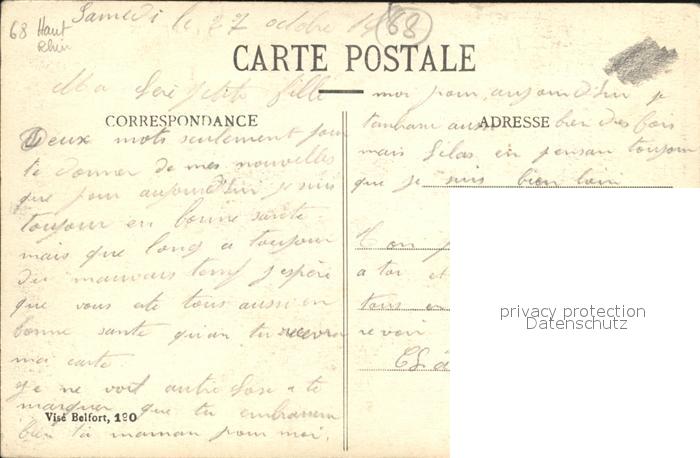 68 Haut
Rhin
Samedi le 27 octobre
68
CARTE POSTALE
Ma petite fille
CORRESPONDANCE
Deux mots seulement pour
te donner de mes nouvelles
que pour aujourd'hui je suis
toujour en bonne santé
mais que long a toujour
du mauvais temp j'espère
que vous ete tous aussi en
bonne santé quan tu recevra
ma carte.
Je ne voit autre a te
marquer que tu embrassera
bien ta maman pour moi.
Visé Belfort, 190
moi pour aujourd'hui je
ADRESSE
aussi bien des fois
mais en pensan toujour
que je suis bien loin
Ton
a toi et
tous en
revoir
privacy protection
Datenschutz